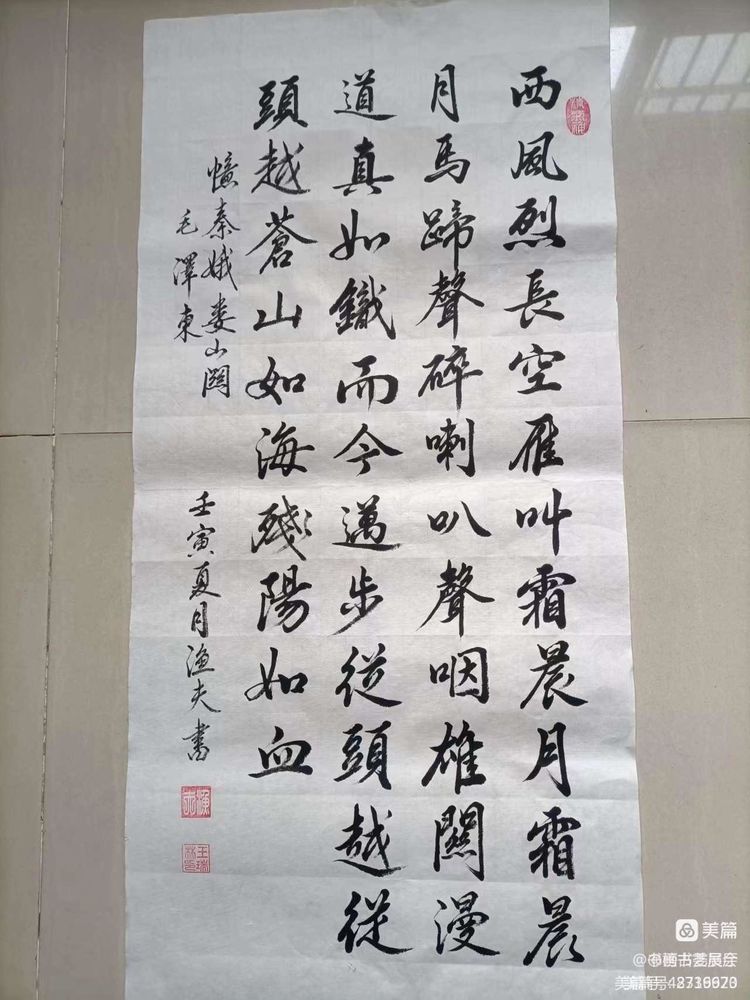 西風烈長空雁叫霜晨月霜晨
月馬蹄聲碎喇叭聲咽雄關漫
道真如鐵而今邁步從頭越從
頭越蒼山如海殘陽如血
憶秦娥婁山關
毛澤東
壬寅夏月漁夫書
美篇